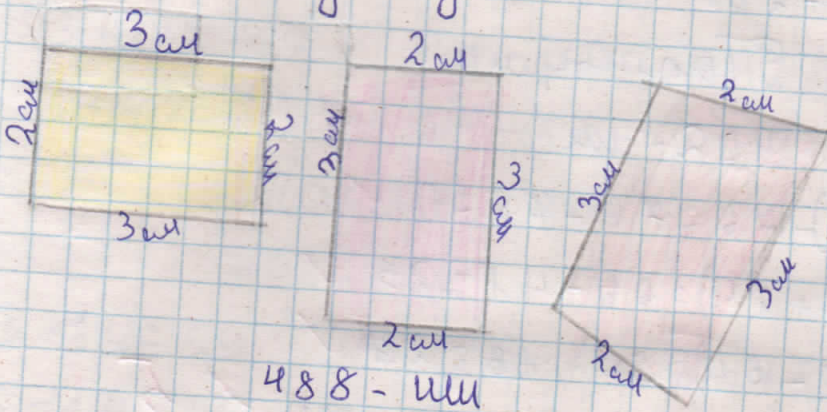 3 см
2 см
2 см
3 см
2 см
3 см
3 см
2 см
2 см
3 см
3 см
2 см
488 - ши